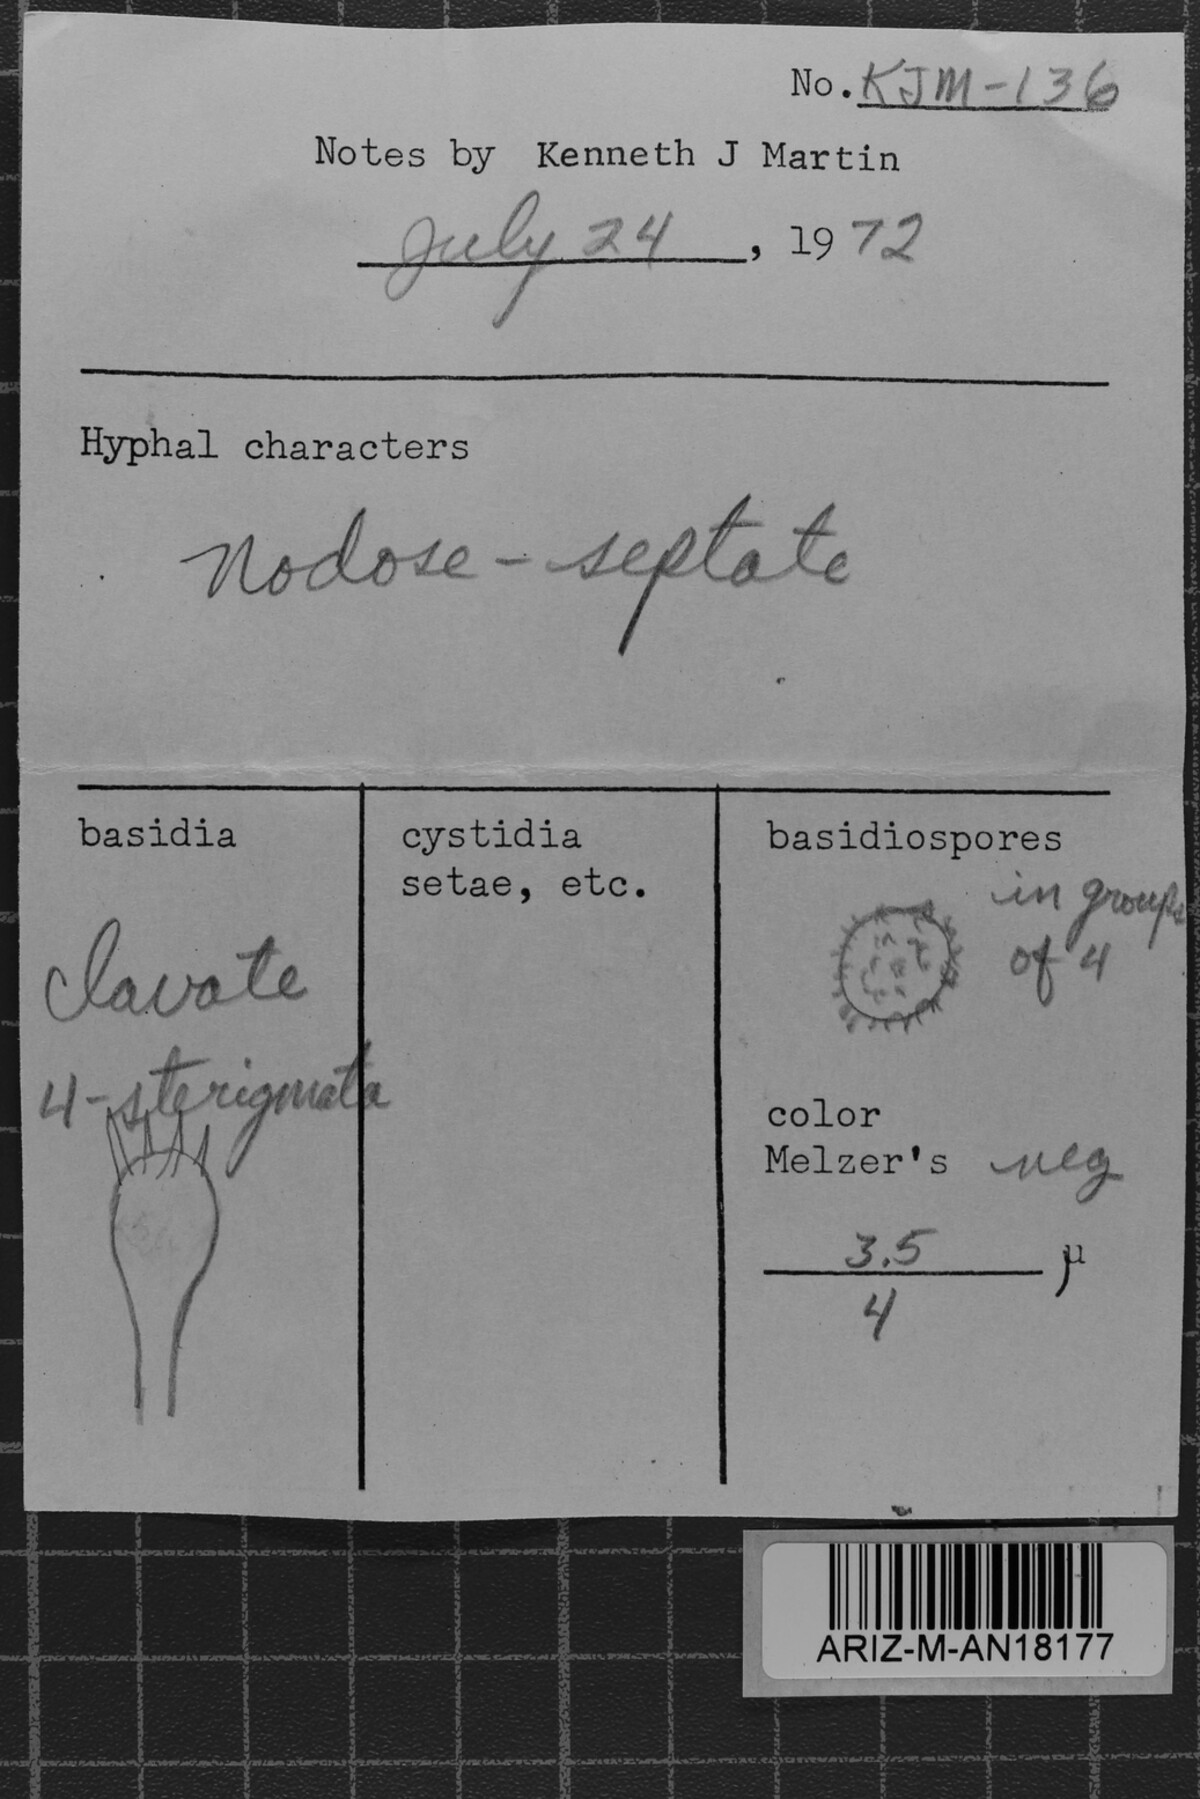 No. KJM-136
Notes by Kenneth J Martin
July 24, 1972
Hyphal characters
Nodose-septate
basidia
clavate
4-sterigmata
cystidia
setae, etc.
basidiospores
in groups
of 4
color
Melzer's neg
3.5 µ
4
ARIZ-M-AN18177